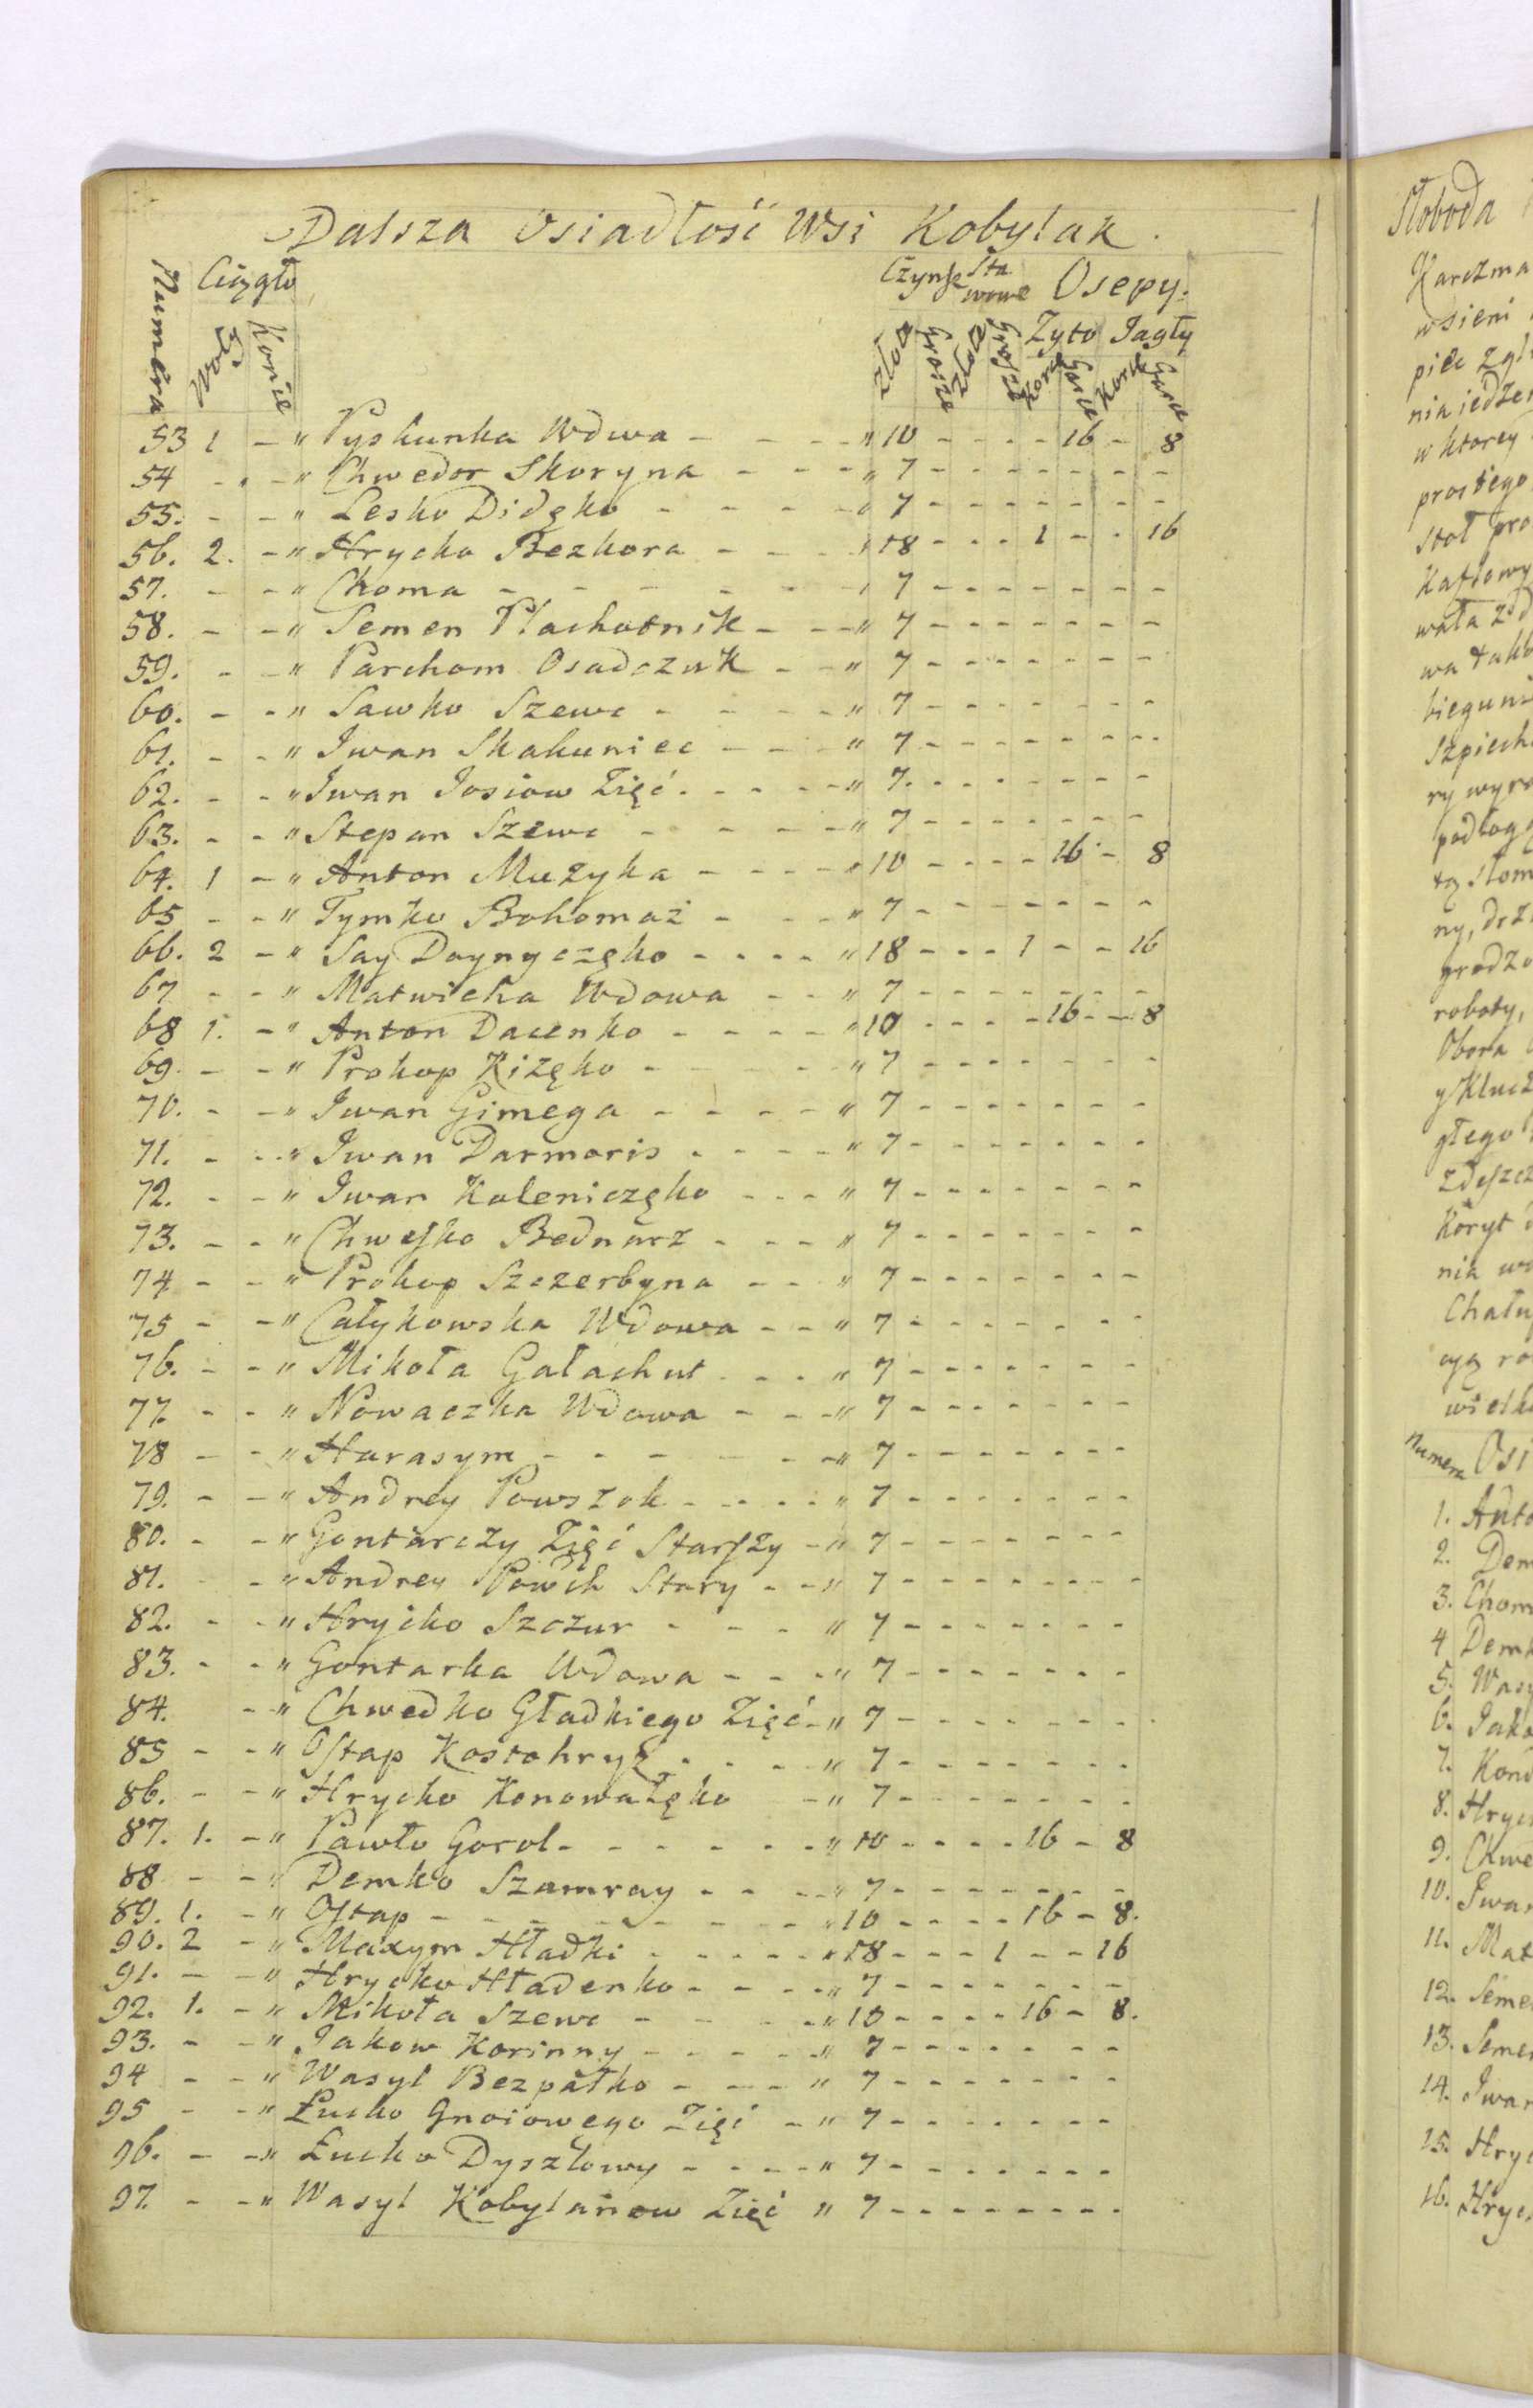 Dalsza Osiadłość Wsi Kobylak.
Numera Ciągło Czynsze Stawowe Osepy.
Woły Konie Złote Grosze Złote Grosze Żyto Jagły
Korce Garce Korce Garce
53 1 - " Pyskunka Wdwa - - - " 10 - - - - 16 - 8
54 - - " Chwedor Skoryna - - - " 7 - - - - - - -
55. - - " Lesko Didęko - - - - " 7 - - - - - - -
56. 2. - " Hrycko Bezkora - - - " 18 - - - 1 - - 16
57. - - " Choma - - - - - - " 7 - - - - - - -
58. - - " Semen Płachotnik - - - " 7 - - - - - - -
59. - - " Parchom Osadczuk - - " 7 - - - - - - -
60. - - " Sawko Szewc - - - - " 7 - - - - - - -
61. - - " Iwan Skakuniec - - - " 7 - - - - - - -
62. - - " Iwan Iosiow Zięć - - - - " 7. - - - - - - -
63. - - " Stepan Szewc - - - - " 7 - - - - - - -
64. 1 - " Anton Muzyka - - - - " 10 - - - - 16 - 8
65 - - " Tymko Bohomaz - - - " 7 - - - - - - -
66. 2 - " Say Daynyczęko - - - - " 18 - - - 1 - - 16
67 - - " Matwicha Wdowa - - " 7 - - - - - - -
68 1. - " Anton Dacenko - - - - " 10 - - - - 16 - - 8
69. - - " Prokop Kizęko - - - - - " 7 - - - - - - -
70. - - " Iwan Gimega - - - - " 7 - - - - - - -
71. - - " Iwan Darmoris - - - - " 7 - - - - - - -
72. - - " Iwan Koleniczęko - - - " 7 - - - - - - -
73. - - " Chwesko Bednarz - - - " 7 - - - - - - -
74 - - " Prokop Szczerbyna - - " 7 - - - - - - -
75 - - " Całykowska Wdowa - - " 7 - - - - - - -
76. - " Mikoła Gałachut - - - " 7 - - - - - - -
77. - - " Nowaczka Wdowa - - - " 7 - - - - - - -
78 - - " Harasym - - - - - - " 7 - - - - - - -
79. - - " Andrey Powszok - - - - " 7 - - - - - - -
80. - - " Gontarczy Zięć Starszy - " 7 - - - - - -
81. - - " Andrey Powch Stary - - " 7 - - - - - - - -
82. - - " Hrycko Szczur - - - - " 7 - - - - - - -
83. - - " Gontarka Wdowa - - - " 7 - - - - - - -
84. - " Chwedko Gładkiego Zięć - " 7 - - - - - - - -
85 - - " Ostap Kostohryz - - - - " 7 - - - - - - -
86. - - " Hrycko Konowałęko - " 7 - - - - - - -
87. 1. - " Pawło Gorol - - - - - - " 10 - - - - 16 - 8
88 - - " Demko Szamray - - - - " 7 - - - - - - -
89. 1. - " Ostap - - - - - - - - " 10 - - - - 16 - 8.
90. 2 - " Maxym Hładki - - - - - " 18 - - - 1 - - 16
91. - - " Hrycko Hładenko - - - - " 7 - - - - - - -
92. 1. - " Mikoła Szewc - - - - - " 10 - - - - 16 - 8.
93. - - " Jakow Korinny - - - - - " 7 - - - - - - -
94 - - " Wasyl Bezpałko - - - - " 7 - - - - - - -
95 - - " Łucko Gnoiowego Zięć - " 7 - - - - - - -
96. - - " Łucko Dyszłowy - - - - " 7 - - - - - - -
97. - - " Wasyl Kobylanow Zięć " 7 - - - - - - - -
Słoboda
Karczma
wsieni
piec
w ktorey
prostego
stoł pro
kaflowy
podłogą
roboty,
Obora
nia
Numera Osi
1. Anto
2. Dem
3. Chom
4 Demk
5. Wasy
6. Jako
7. Kond
8. Hryc
9. Chwe
10. Iwan
11. Mat
12. Seme
13. Seme
14. Iwan
15. Hryc
16. Hryc